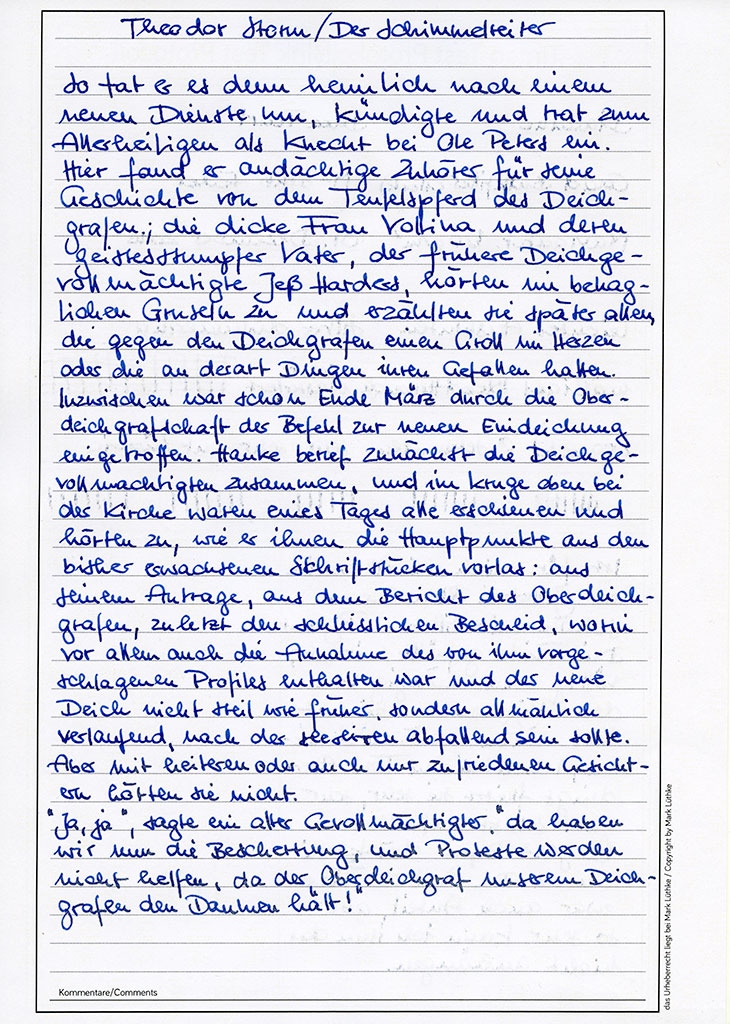 Theodor Storm/Der Schimmelreiter
So tat er es denn heimlich nach einem
neuen Dienste um, kündigte und trat zum
Allerheiligen als Knecht bei Ole Peters ein.
Hier fand er andächtige Zuhörer für seine
Geschichte von dem Teufelspferd des Deich-
grafen.; die dicke Frau Vollina und deren
geistesstumpfer Vater, der frühere Deichge-
vollmächtigte Jeß Harders, hörten in behag-
lichen Gruseln zu und erzählten sie später allen,
die gegen den Deichgrafen einen Groll im Herzen
oder die an derart Dingen ihren Gefallen hatten.
Inzwischen war schon Ende März durch die Ober-
deichgrafschaft der Befehl zur neuen Eindeichung
eingetroffen. Hauke berief zunächst die Deichge-
vollmächtigten zusammen, und im Kruge oben bei
der Kirche waren eines Tages alle erschienen und
hörten zu, wie er ihnen die Hauptpunkte aus den
bisher erwachsenen Schriftstücken vorlas: aus
seinem Antrage, aus dem Bericht des Oberdeich-
grafen, zuletzt den schliesslichen Bescheid, worin
vor allem auch die Annahme des von ihm vorge-
schlagenen Profiles enthalten war und der neue
Deich nicht steil wie früher, sondern allmählich
verlaufend, nach der seeseiten abfallend sein sollte.
Aber mit heiteren oder auch nur zufriedenen Gesicht-
ern hörten sie nicht.
"Ja, ja", sagte ein alter Gevollmächtigter, "da haben
wir nun die Bescherung, und Proteste werden
nicht helfen, da der Oberdeichgraf unserem Deich-
grafen den Daumen hält!"
Kommentare/Comments
das Urheberrecht liegt bei Mark Lüthke / Copyright by Mark Lüthke